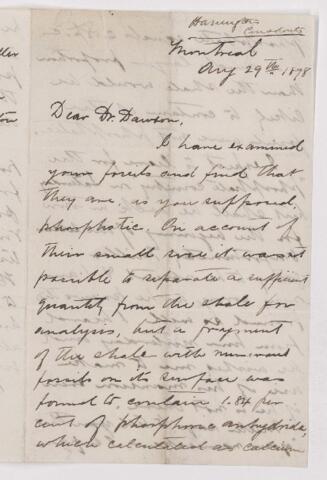 Harrington
Conodonts
Montreal
Aug 29th 1878
Dear Dr. Dawson,
I have examined
your fossils and find that
they are, as you supposed,
phosphatic. On account of
their small size it wasn't
possible to separate a sufficient
quantity from the shale for
analysis, but a fragment
of the shale with numerous
fossils on its surface was
found to contain 1.84 per
cent of phosphoric anhydride,
which calculated as calcium